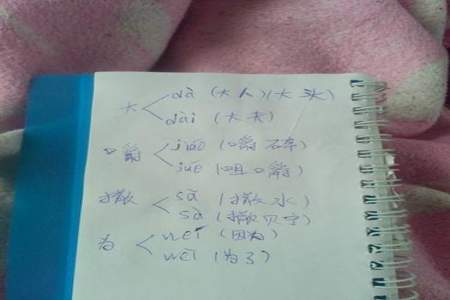 大 dà (大人)(大头)
dài (大夫)
嚼 jiáo (嚼碎)
jué (咀嚼)
撒 sā (撒水)
sà (撒贝宁)
为 wèi (因为)
wēi (为了)